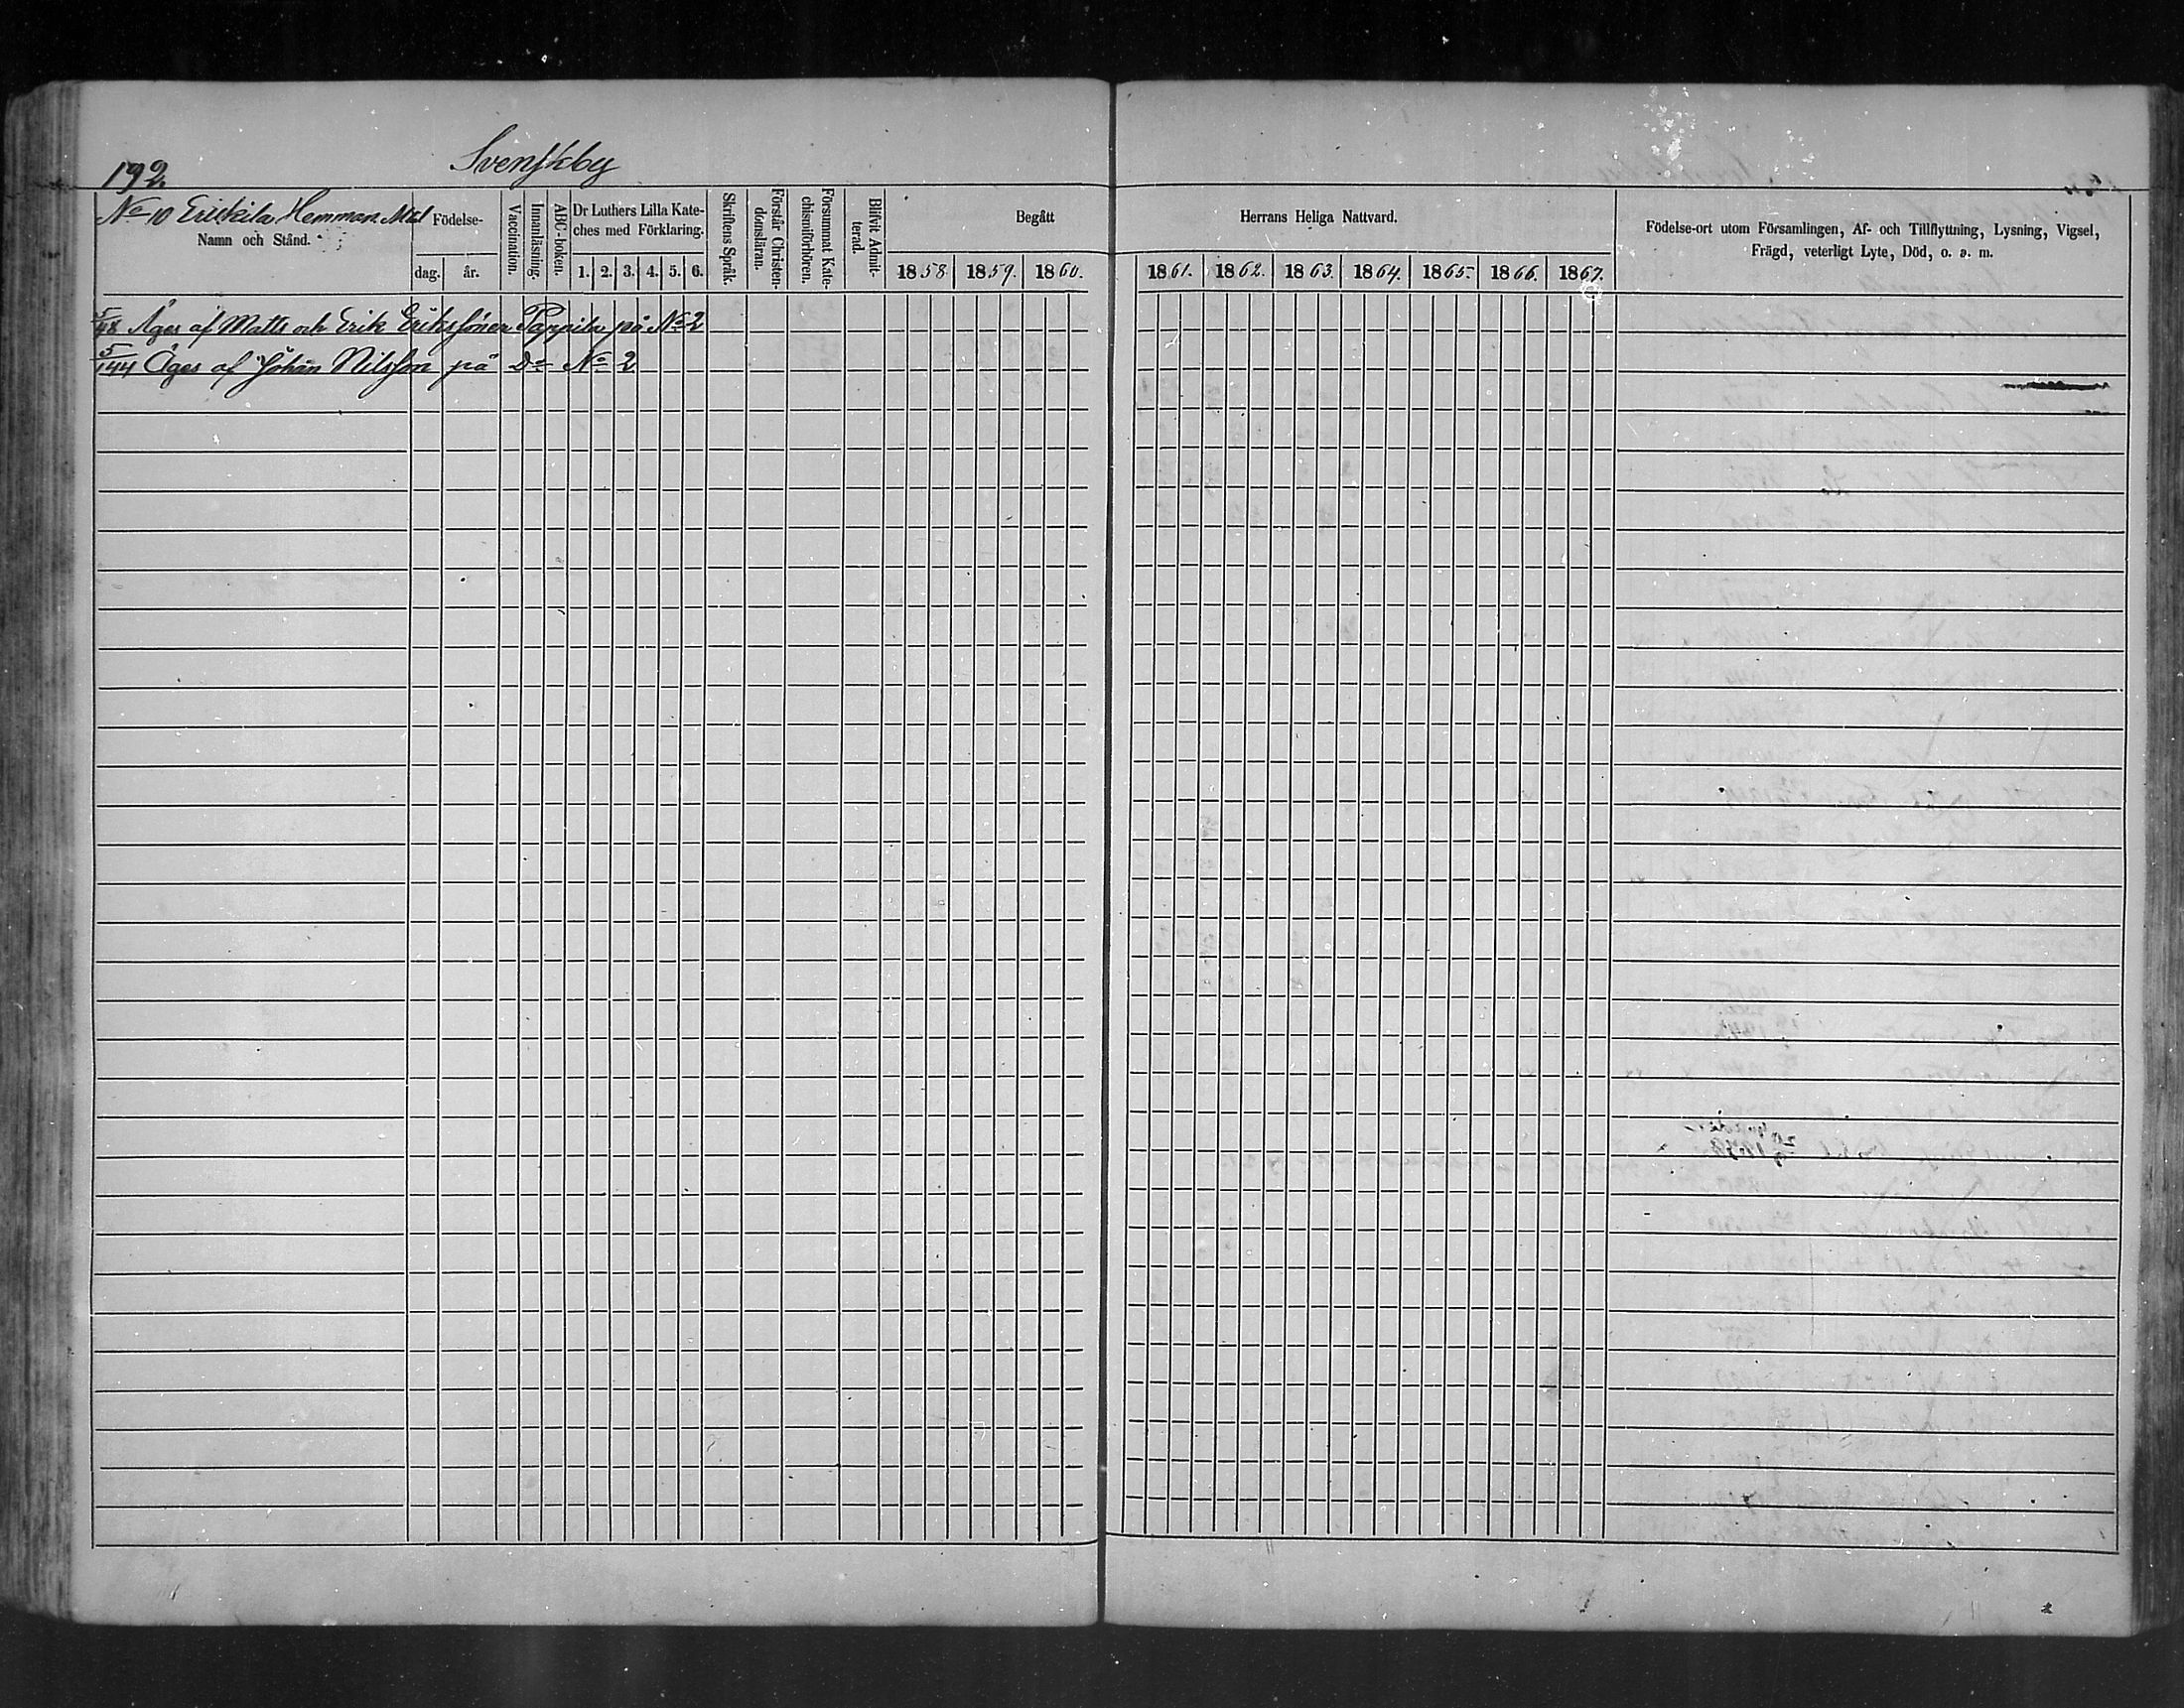 192.
Svenskby
No 10 Erickila Hemman. Mtl
Namn och Stånd.
Födelse-
dag. år.
Vaccination.
Innanläsning.
ABC-boken.
Dr Luthers Lilla Kate-
ches med Förklaring.
1. 2. 3. 4. 5. 6.
Skriftens Språk.
Förstår Christen-
domsläran.
Försummat Kate-
chismiförhören.
Blifvit Admit-
terad.
Begått Herrans Heliga Nattvard.
1858. 1859. 1860. 1861. 1862. 1863. 1864. 1865. 1866. 1867.
Födelse-ort utom Församlingen, Af- och Tillflyttning, Lysning, Vigsel,
Frägd, veterligt Lyte, Död, o. s. m.
5/48 Äges af Matts och Erik Erikssöner Pappila på No 2
5/144 Äges af Johan Nilsson på Do No 2